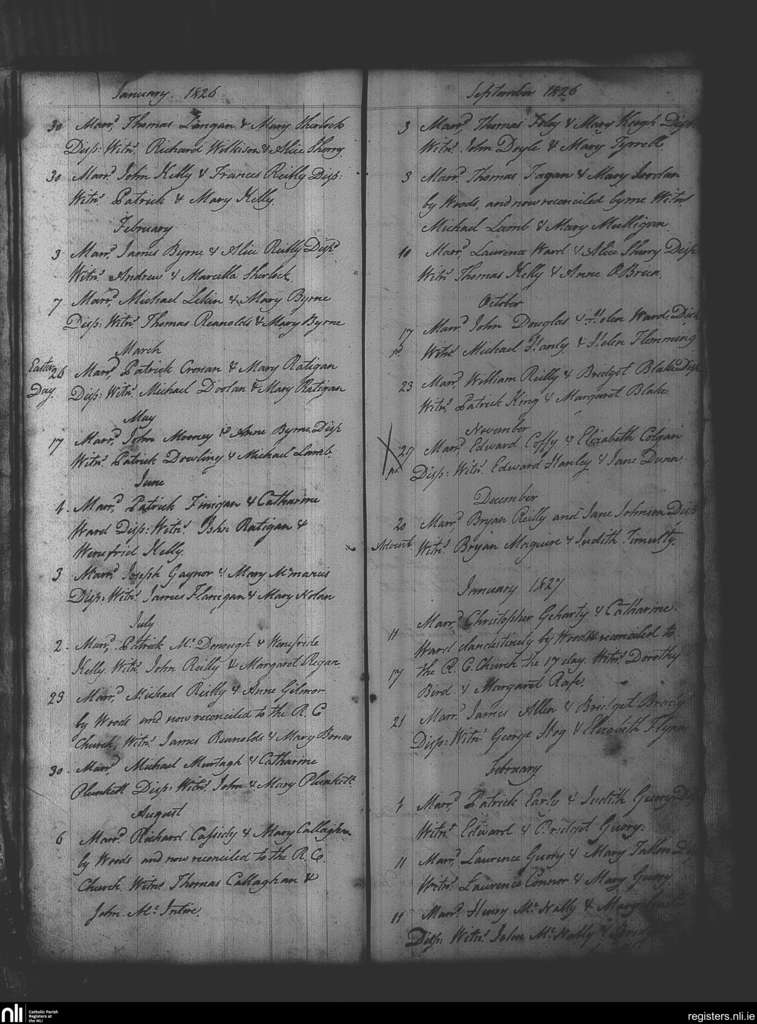 January 1826
30 Marrd Thomas Langan & Mary Sherlock
Disp: Witns Richard Wilkison & Alice Sherry
30 Marrd John Kelly & Frances Reilly Disp:
Witns Patrick & Mary Kelly
February
3 Marrd James Byrne & Alice Reilly Disp:
Witns Andrew & Marcella Sherlock
7 Marrd Michael Lekin & Mary Byrne
Disp: Witns Thomas Reanolds & Mary Byrne
March
Easter Day 26 Marrd Patrick Cronan & Mary Ratigan
Disp: Witns Michael Doolan & Mary Ratigan
May
17 Marrd John Mooney & Anne Byrne Disp
Witns Patrick Dowling & Michael Lamb
June
1 Marrd Patrick Finigan & Catharine
Ward Disp: Witns John Ratigan &
Wenefrid Kelly
3 Marrd Joseph Gaynor & Mary McManus
Disp: Witns James Flanigan & Mary Nolan
July
2 Marrd Patrick Mc Donough & Wenefride
Kelly Witns John Reilly & Margaret Regan
23 Marrd Michael Reilly & Anne Gilmor
by Woods and now reconciled to the R. C
Church, Witns James Reanolds & Mary
30 Marrd Michael Murtagh & Catharine
Plunkett Disp: Witns John & Mary Plunkett
August
6 Marrd Richard Cassidy & Mary Callaghan
by Woods and now reconciled to the R. C.
Church. Witns Thomas Callaghan &
John Mc Intire.
September 1826
3 Marrd Thomas Foley & Mary Keogh Disp
Witns John Doyle & Mary Tyrrell
3 Marrd Thomas Fagan & Mary Jordan
by Woods, and now reconciled by me Witns
Michael Lamb & Mary Mulligan
10 Marrd Laurence Ward & Alice Sherry Disp:
Witns Thomas Kelly & Anne O'Brien
October
17 Marrd John Douglas & Helen Ward Disp
Witns Michael Hanly & Helen Flemming
23 Marrd William Reilly & Bridget Blake Disp
Witns Patrick King & Margaret Blake
November
29 Marrd Edward Coffy & Elizabeth Colgan
Disp: Witns Edward Hanley & Jane Dunn
December
20 Marrd Bryan Reilly and Jane Johnson Disp
Advent Witns Bryan Maguire & Judith Timulty
January 1827
11 Marrd Christopher Geharty & Catharine
Ward clandestinely by Woods reconciled to
17 the R. C. Church the 17 day. Witns Dorothy
Bird & Margaret Rafe.
21 Marrd James Allen & Bridget Brady
Disp: Witns George Hog & Elizabeth Flynn
February
4 Marrd Patrick Early & Judith Guery Disp
Witns Edward & Bridget Guery.
11 Marrd Laurence Guery & Mary Fallon Disp
Witns Laurence Connor & Mary Guery
11 Marrd Henry Mc Nally &
Disp: Witns John Mc Nally &
nli
Catholic Parish
Registers at
the NLI
registers.nli.ie